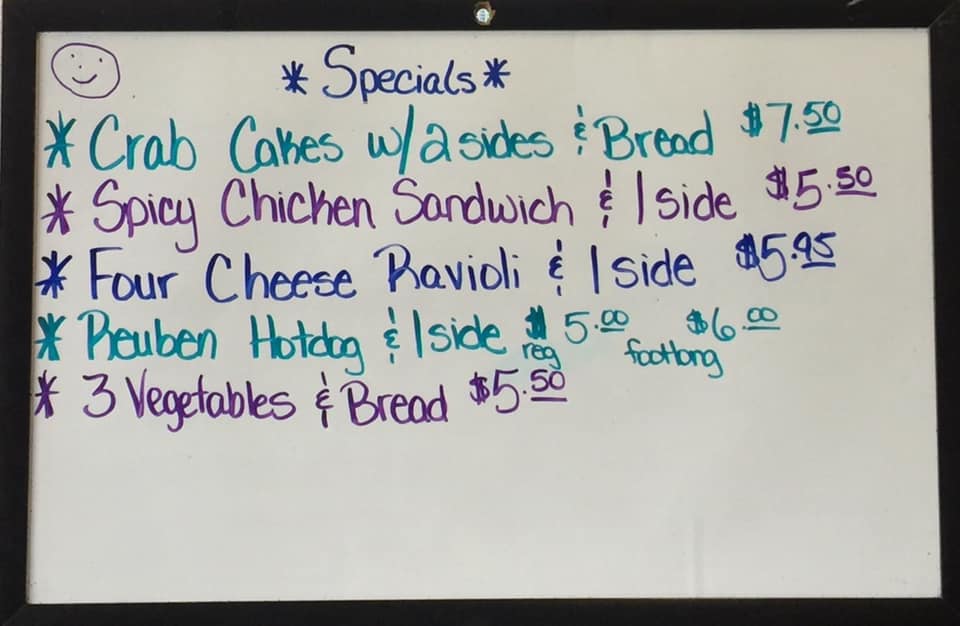 * Specials *
* Crab Cakes w/2 sides & Bread $7.50
* Spicy Chicken Sandwich & 1 side $5.50
* Four Cheese Ravioli & 1 side $5.95
* Reuben Hotdog & 1 side $5.00 $6.00
reg footlong
* 3 Vegetables & Bread $5.50